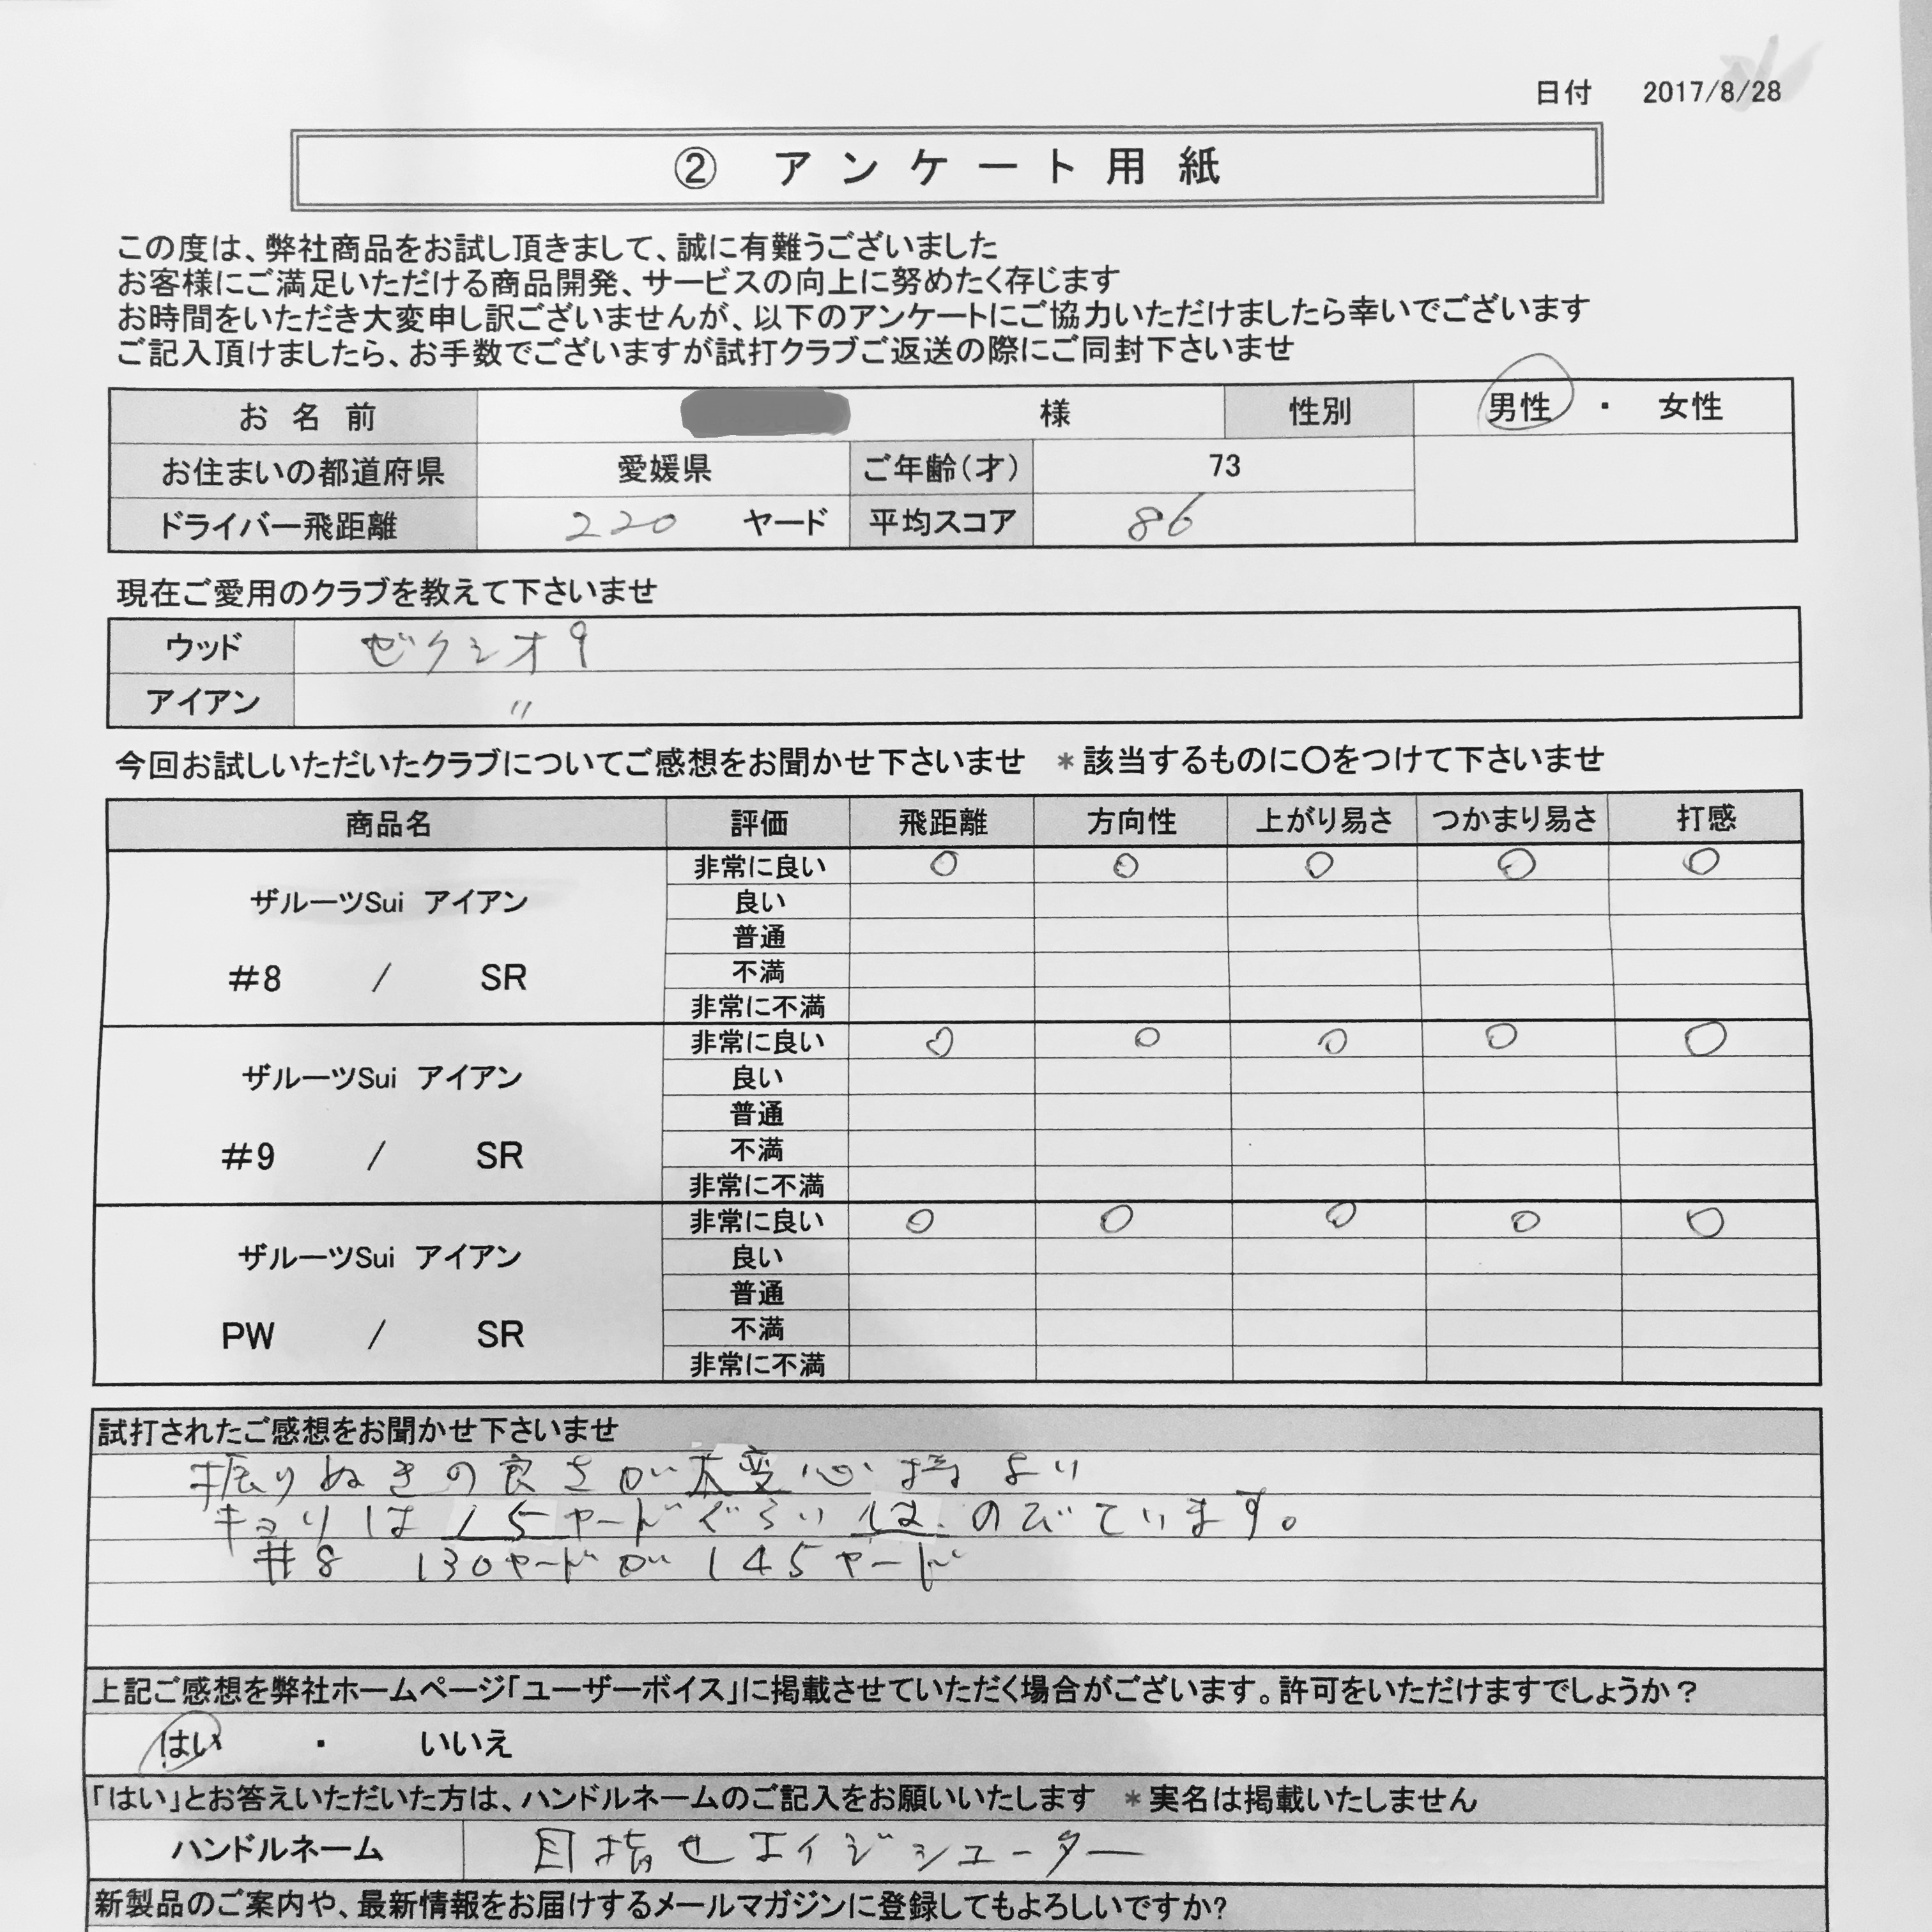 日付 2017/8/28
② アンケート用紙
この度は、弊社商品をお試し頂きまして、誠に有難うございました
お客様にご満足いただける商品開発、サービスの向上に努めたく存じます
お時間をいただき大変申し訳ございませんが、以下のアンケートにご協力いただけましたら幸いでございます
ご記入頂けましたら、お手数でございますが試打クラブご返送の際にご同封下さいませ
お名前 様 性別 男性 ・ 女性
お住まいの都道府県 愛媛県 ご年齢(才) 73
ドライバー飛距離 220 ヤード 平均スコア 86
現在ご愛用のクラブを教えて下さいませ
ウッド ゼクシオ9
アイアン 〃
今回お試しいただいたクラブについてご感想をお聞かせ下さいませ *該当するものに〇をつけて下さいませ
商品名 評価 飛距離 方向性 上がり易さ つかまり易さ 打感
ザルーツSui アイアン
#8 / SR
非常に良い ○ ○ ○ ○ ○
良い
普通
不満
非常に不満
ザルーツSui アイアン
#9 / SR
非常に良い ○ ○ ○ ○ ○
良い
普通
不満
非常に不満
ザルーツSui アイアン
PW / SR
非常に良い ○ ○ ○ ○ ○
良い
普通
不満
非常に不満
試打されたご感想をお聞かせ下さいませ
振りぬきの良さが大変心持よい
キョリは15ヤードぐらいは、のびています。
#8 130ヤードが145ヤード
上記ご感想を弊社ホームページ「ユーザーボイス」に掲載させていただく場合がございます。許可をいただけますでしょうか？
はい ・ いいえ
「はい」とお答えいただいた方は、ハンドルネームのご記入をお願いいたします *実名は掲載いたしません
ハンドルネーム 目指せエイジシューター
新製品のご案内や、最新情報をお届けするメールマガジンに登録してもよろしいですか?